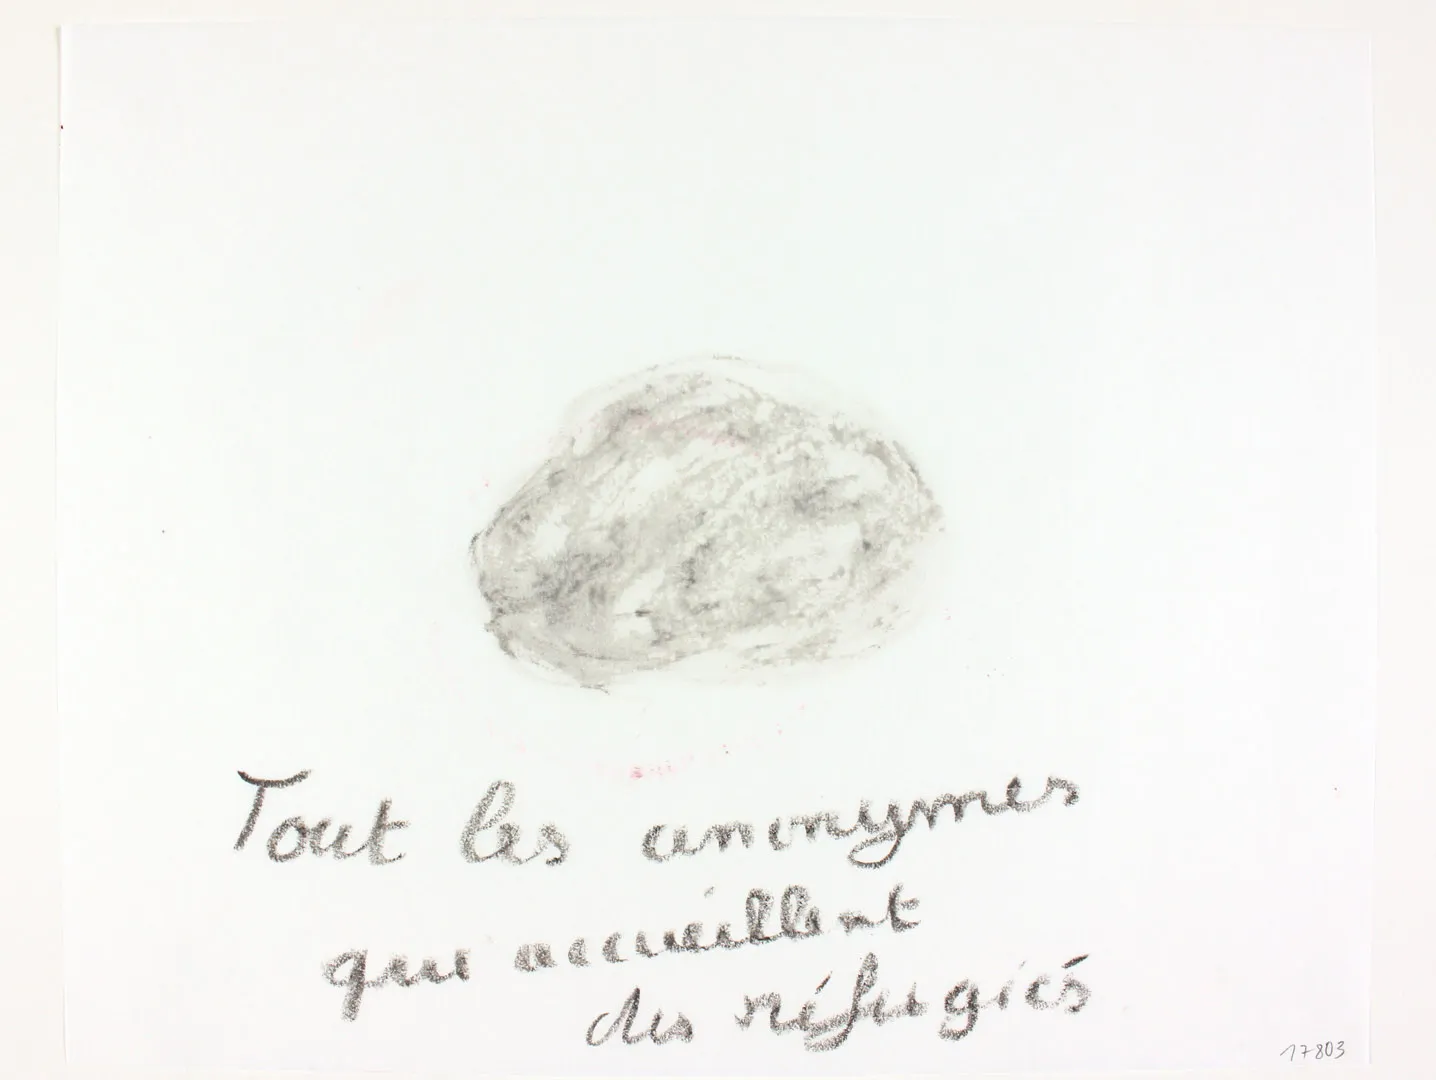 Tout les anonymes
qui accueillent
des réfugiés
17803